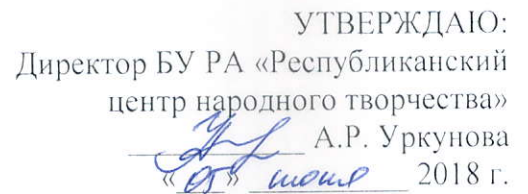 УТВЕРЖДАЮ:
Директор БУ РА «Республиканский
центр народного творчества»
А.Р. Уркунова
«05» июня 2018 г.